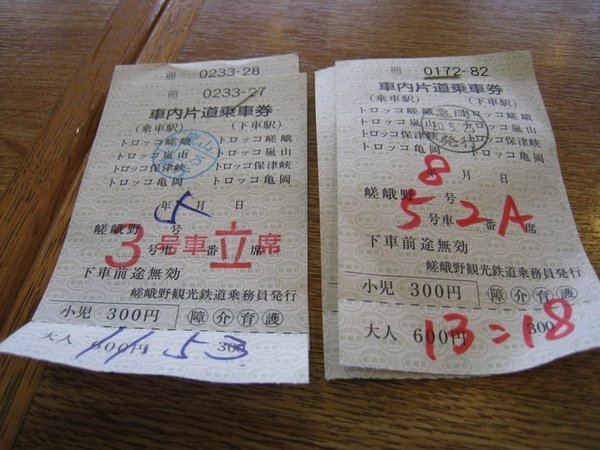 冊 0233-28
冊 0233-27
車内片道乗車券
(乗車駅) (下車駅)
トロッコ嵯峨 トロッコ嵯峨
トロッコ嵐山 トロッコ嵐山
トロッコ保津峡 トロッコ保津峡
トロッコ亀岡 トロッコ亀岡
年 5 月 日
嵯峨野 号
3 号車 立 番 席
下車前途無効
嵯峨野観光鉄道乗務員発行
小児 300円 障 介 育 護
大人 600円 300
11 53
冊 0172-82
車内片道乗車券
(乗車駅) (下車駅)
トロッコ嵯峨 トロッコ嵯峨
トロッコ嵐山 トロッコ嵐山
トロッコ保津峡 トロッコ保津峡
トロッコ亀岡 トロッコ亀岡
発行
8 月 日
嵯峨野 号
5 号車 2A 番 席
下車前途無効
嵯峨野観光鉄道乗務員発行
小児 300円 障 介 育 護
大人 600円 300
13=18